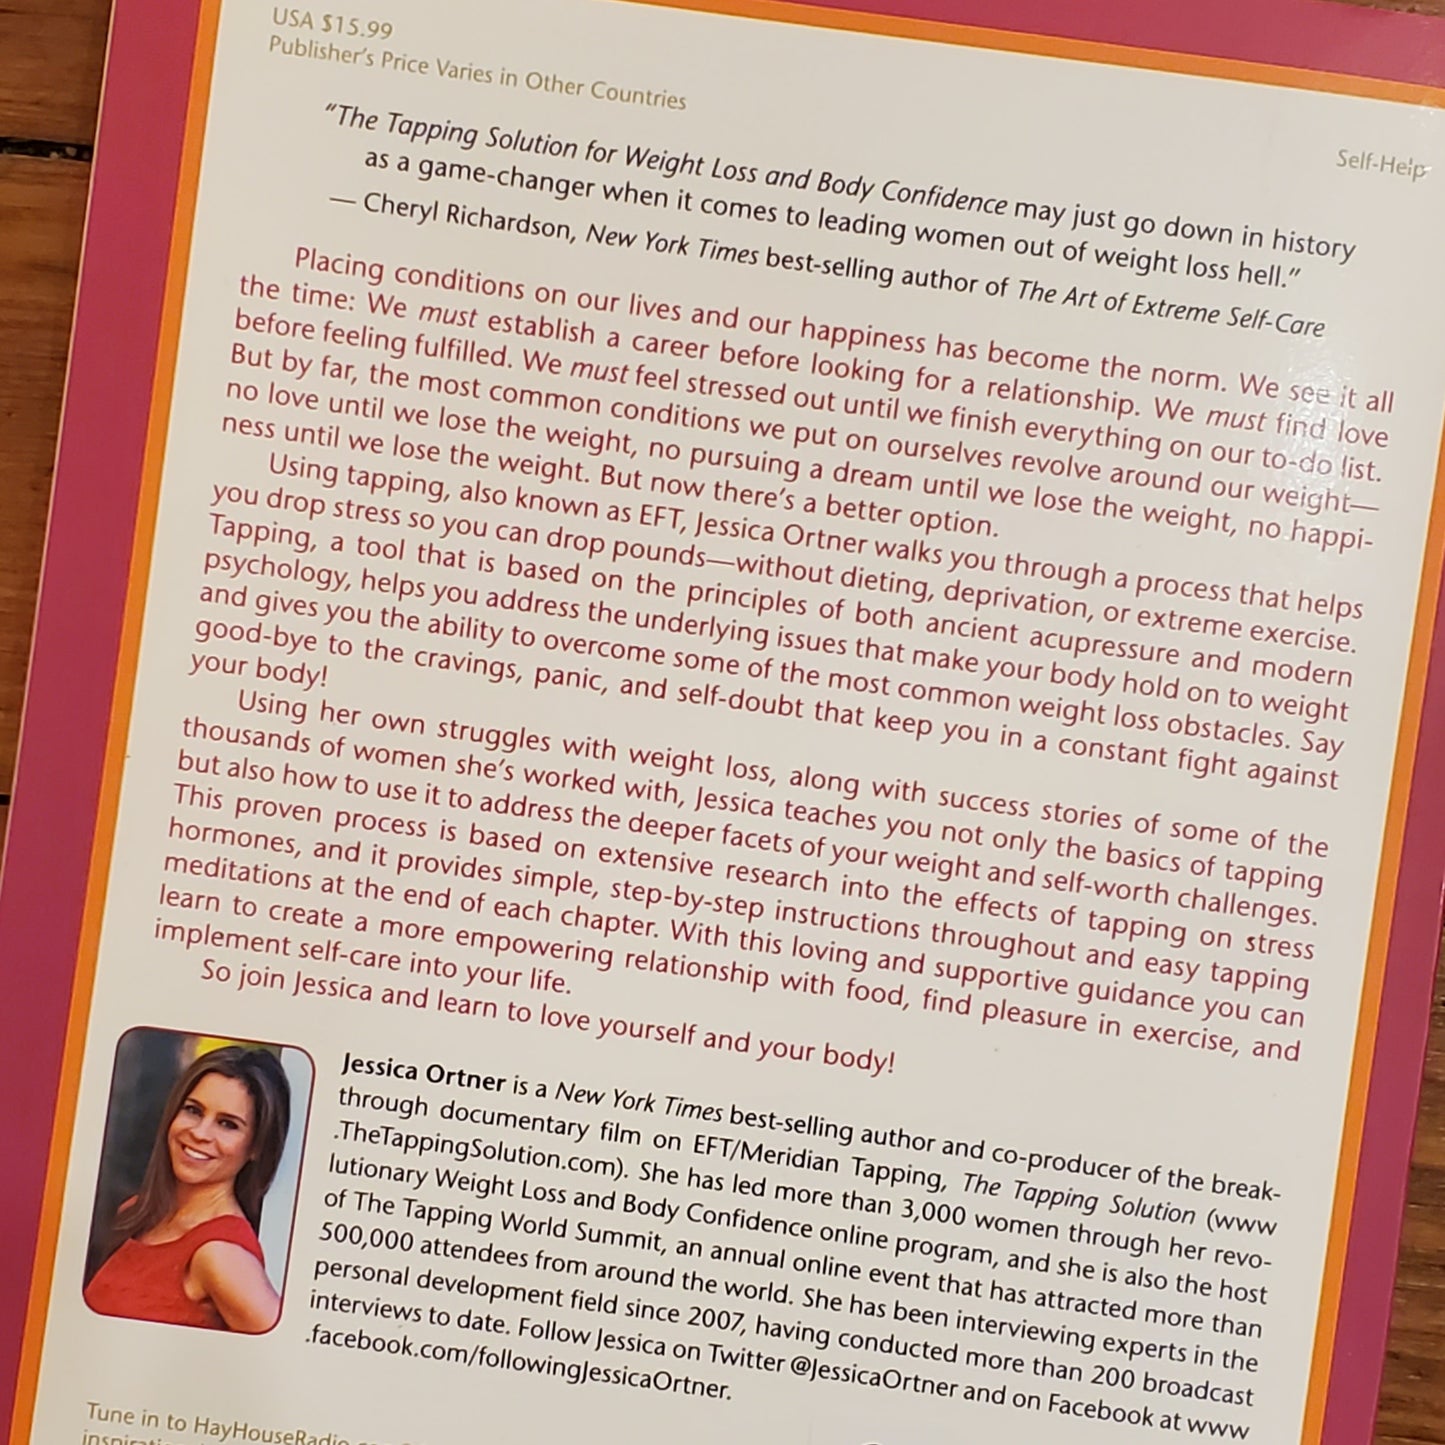 USA $15.99
Publisher's Price Varies in Other Countries
Self-Help
"The Tapping Solution for Weight Loss and Body Confidence may just go down in history
as a game-changer when it comes to leading women out of weight loss hell."
— Cheryl Richardson, New York Times best-selling author of The Art of Extreme Self-Care
Placing conditions on our lives and our happiness has become the norm. We see it all
the time: We must establish a career before looking for a relationship. We must find love
before feeling fulfilled. We must feel stressed out until we finish everything on our to-do list.
But by far, the most common conditions we put on ourselves revolve around our weight—
no love until we lose the weight, no pursuing a dream until we lose the weight, no happi-
ness until we lose the weight. But now there's a better option.
Using tapping, also known as EFT, Jessica Ortner walks you through a process that helps
you drop stress so you can drop pounds—without dieting, deprivation, or extreme exercise.
Tapping, a tool that is based on the principles of both ancient acupressure and modern
psychology, helps you address the underlying issues that make your body hold on to weight
and gives you the ability to overcome some of the most common weight loss obstacles. Say
good-bye to the cravings, panic, and self-doubt that keep you in a constant fight against
your body!
Using her own struggles with weight loss, along with success stories of some of the
thousands of women she's worked with, Jessica teaches you not only the basics of tapping
but also how to use it to address the deeper facets of your weight and self-worth challenges.
This proven process is based on extensive research into the effects of tapping on stress
hormones, and it provides simple, step-by-step instructions throughout and easy tapping
meditations at the end of each chapter. With this loving and supportive guidance you can
learn to create a more empowering relationship with food, find pleasure in exercise, and
implement self-care into your life.
So join Jessica and learn to love yourself and your body!
Jessica Ortner is a New York Times best-selling author and co-producer of the break-
through documentary film on EFT/Meridian Tapping, The Tapping Solution (www
.TheTappingSolution.com). She has led more than 3,000 women through her revo-
lutionary Weight Loss and Body Confidence online program, and she is also the host
of The Tapping World Summit, an annual online event that has attracted more than
500,000 attendees from around the world. She has been interviewing experts in the
personal development field since 2007, having conducted more than 200 broadcast
interviews to date. Follow Jessica on Twitter @JessicaOrtner and on Facebook at www
.facebook.com/followingJessicaOrtner.
Tune in to HayHouseRadio